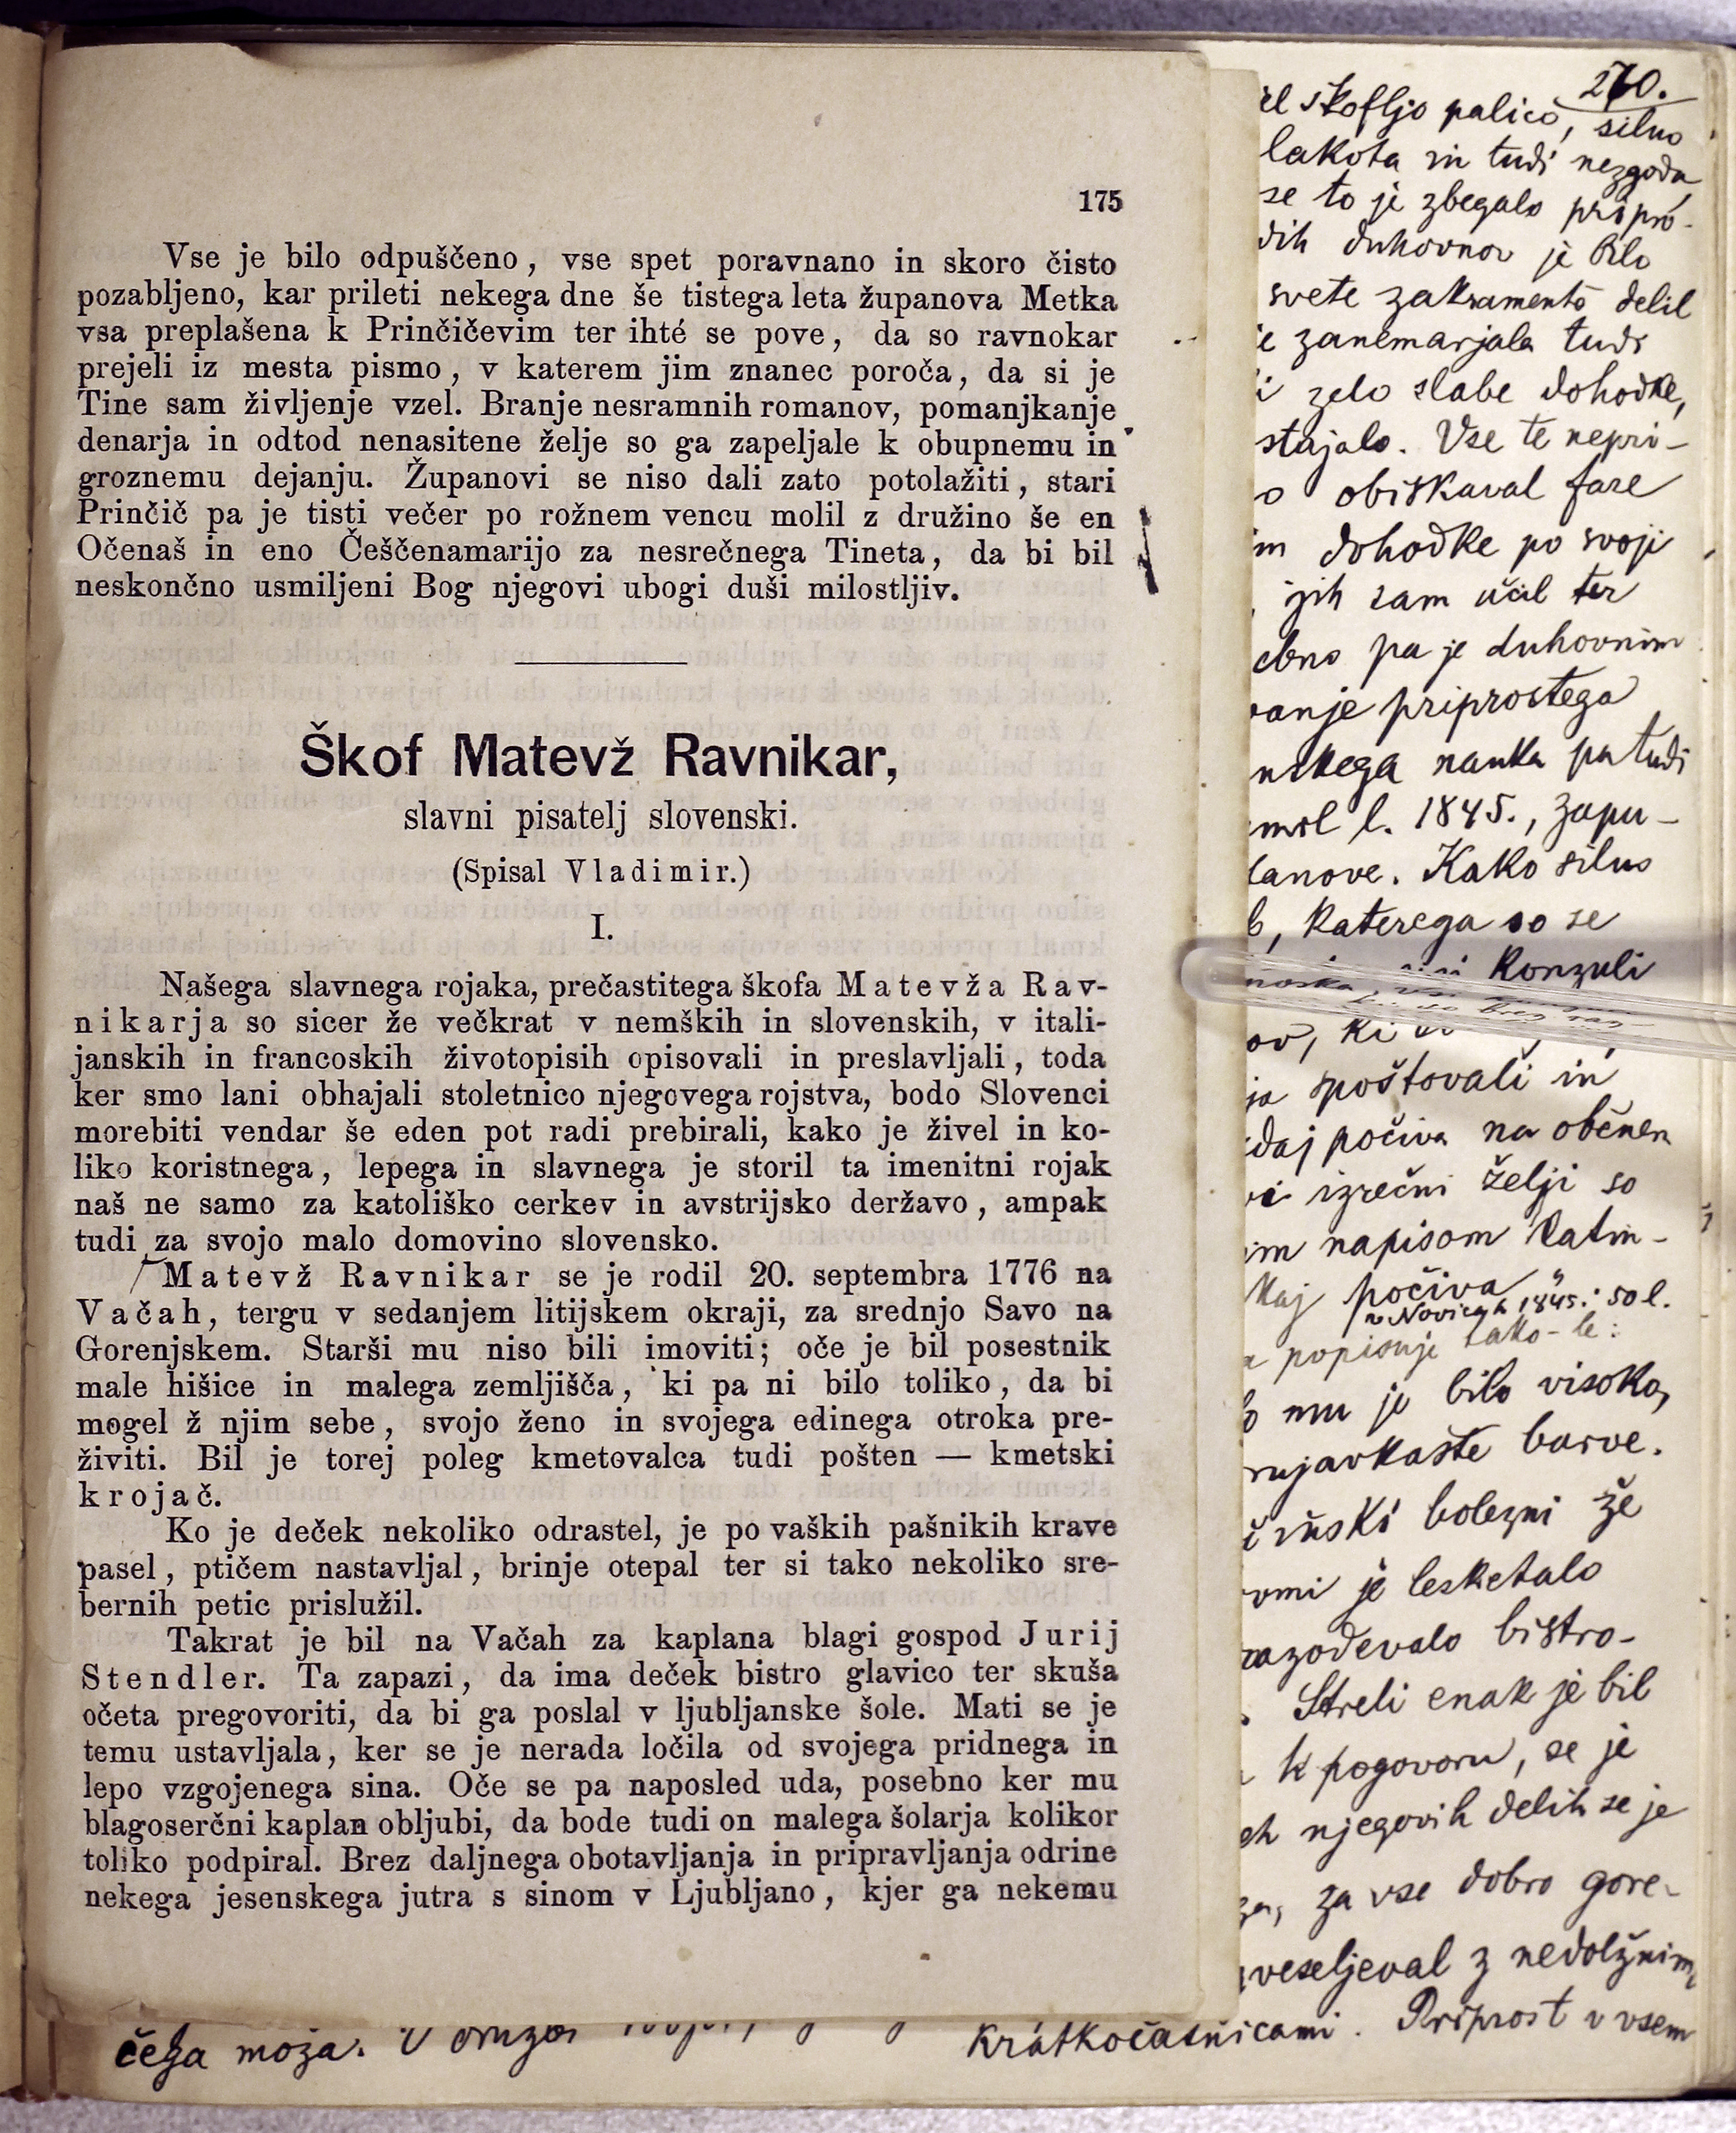 175
Vse je bilo odpuščeno, vse spet poravnano in skoro čisto
pozabljeno, kar prileti nekega dne še tistega leta županova Metka
vsa preplašena k Prinčičevim ter ihté se pove, da so ravnokar
prejeli iz mesta pismo, v katerem jim znanec poroča, da si je
Tine sam življenje vzel. Branje nesramnih romanov, pomanjkanje
denarja in odtod nenasitene želje so ga zapeljale k obupnemu in
groznemu dejanju. Županovi se niso dali zato potolažiti, stari
Prinčič pa je tisti večer po rožnem vencu molil z družino še en
Očenaš in eno Češčenamarijo za nesrečnega Tineta, da bi bil
neskončno usmiljeni Bog njegovi ubogi duši milostljiv.
Škof Matevž Ravnikar,
slavni pisatelj slovenski.
(Spisal Vladimir.)
I.
Našega slavnega rojaka, prečastitega škofa Matevža Rav-
nikarja so sicer že večkrat v nemških in slovenskih, v itali-
janskih in francoskih životopisih opisovali in preslavljali, toda
ker smo lani obhajali stoletnico njegovega rojstva, bodo Slovenci
morebiti vendar še eden pot radi prebirali, kako je živel in ko-
liko koristnega, lepega in slavnega je storil ta imenitni rojak
naš ne samo za katoliško cerkev in avstrijsko deržavo, ampak
tudi za svojo malo domovino slovensko.
Matevž Ravnikar se je rodil 20. septembra 1776 na
Vačah, tergu v sedanjem litijskem okraji, za srednjo Savo na
Gorenjskem. Starši mu niso bili imoviti; oče je bil posestnik
male hišice in malega zemljišča, ki pa ni bilo toliko, da bi
mogel ž njim sebe, svojo ženo in svojega edinega otroka pre-
živiti. Bil je torej poleg kmetovalca tudi pošten — kmetski
krojač.
Ko je deček nekoliko odrastel, je po vaških pašnikih krave
pasel, ptičem nastavljal, brinje otepal ter si tako nekoliko sre-
bernih petic prislužil.
Takrat je bil na Vačah za kaplana blagi gospod Jurij
Stendler. Ta zapazi, da ima deček bistro glavico ter skuša
očeta pregovoriti, da bi ga poslal v ljubljanske šole. Mati se je
temu ustavljala, ker se je nerada ločila od svojega pridnega in
lepo vzgojenega sina. Oče se pa naposled uda, posebno ker mu
blagoserčni kaplan obljubi, da bode tudi on malega šolarja kolikor
toliko podpiral. Brez daljnega obotavljanja in pripravljanja odrine
nekega jesenskega jutra s sinom v Ljubljano, kjer ga nekemu
škofljo palico, silno
lakota in tudi nezgoda
se to je zbegalo pripro-
dih duhovnov je bilo
svete zakramentō delil
zanemarjala tudi
zelo slabe dohodke,
stajalo. Vse te nepri-
obiskaval fare
dohodke po svoji
jih sam učil ter
pa je duhovnim
vanje priprostega
nskega nauka pa tudi
l. 1845., zapu-
Kako silno
katerega so se
konzuli
ki
spoštovali in
počiva na občnem
izrečni želji so
napisom latin-
počiva
v Novicah 1845. : sol.
popisuje tako-le:
mu je bilo visoko,
rujavkaste barve.
bolezni že
je lesketalo
razodevalo bistro-
Streli enak je bil
k pogovoru, se je
njegovih delih se je
za vse dobro gore-
veseljeval z nedolžnim,
čega moža. V
kratkočasnicami. Priprost v vsem